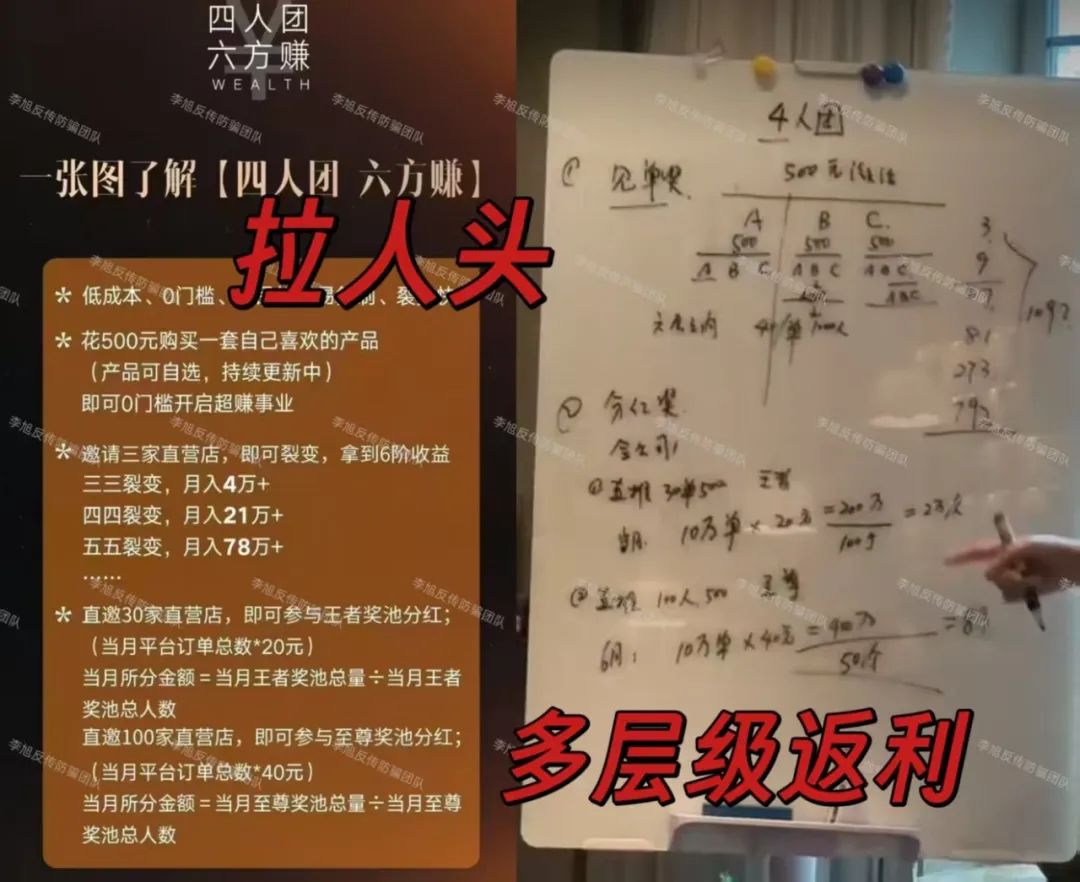 四人团
六方赚
WEALTH
一张图了解【四人团 六方赚】
拉人头
* 低成本、0门槛、
* 花500元购买一套自己喜欢的产品
(产品可自选，持续更新中)
即可0门槛开启超赚事业
* 邀请三家直营店，即可裂变，拿到6阶收益
三三裂变，月入4万+
四四裂变，月入21万+
五五裂变，月入78万+
……
* 直邀30家直营店，即可参与王者奖池分红；
(当月平台订单总数*20元)
当月所分金额=当月王者奖池总量÷当月王者
奖池总人数
直邀100家直营店，即可参与至尊奖池分红；
(当月平台订单总数*40元)
当月所分金额=当月至尊奖池总量÷当月至尊
奖池总人数
4人团
① 见单奖
500元
A B C
500 500 500
A B C A B C A B C
ABC
3
9
81
273
② 分红奖
全公司
① 直推30单500 王者
10万单×20元=200万
100个
=2万
② 直推100人500 至尊
10万单×40元=400万
50个
=8万
多层级返利
李旭反传防骗团队